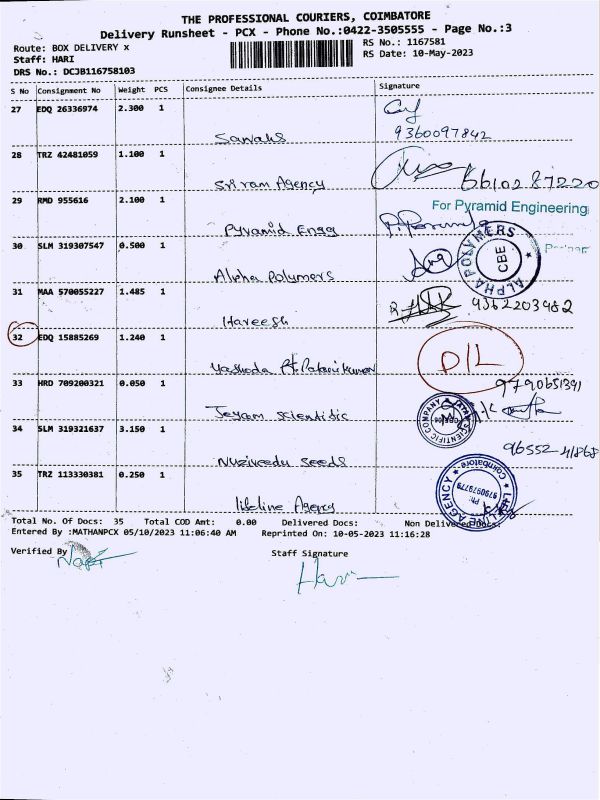 THE PROFESSIONAL COURIERS, COIMBATORE
Delivery Runsheet - PCX - Phone No.:0422-3505555 - Page No.:3
Route: BOX DELIVERY x
RS No.: 1167581
Staff: HARI
RS Date: 10-May-2023
DRS No.: DCJB116758103
S No Consignment No Weight PCS Consignee Details Signature
27 EDQ 26336974 2.300 1
Sawans
9360097842
28 TRZ 42481059 1.100 1
Sriram Agency
6610287220
29 RMD 955616 2.100 1
For Pyramid Engineering
Pyramid Engg
30 SLM 319307547 0.500 1
Alpha Polymers
ALPHA POLYMERS
CBE
31 MAA 570055227 1.485 1
9362203982
Hareesh
32 EDQ 15885269 1.240 1
D/L
Yashoda
33 HRD 709200321 0.050 1
9790651391
Jeyam Scientific
SCIENTIFIC COMPANY
34 SLM 319321637 3.150 1
96552 41868
Nuziveedu Seeds
35 TRZ 113330381 0.250 1
Lifeline Agency
Coimbatore
Ph:
9790979779
AGENCY
Total No. Of Docs: 35 Total COD Amt: 0.00 Delivered Docs: Non Delivered Docs:
Entered By :MATHANPCX 05/10/2023 11:06:40 AM Reprinted On: 10-05-2023 11:16:28
Verified By
Staff Signature
Hari